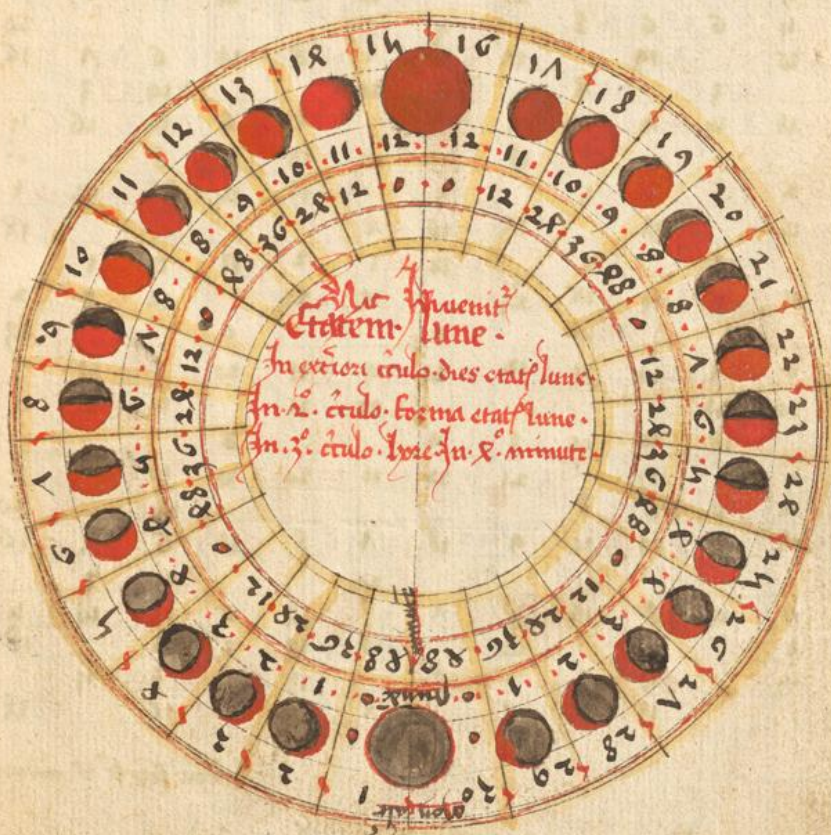 Hic Invenitr
Etatem · lune ·
In exteriori circulo · dies etatis lune ·
In · 2º · circulo · forma etatis lune ·
In · 3º · circulo · hore · In · 4º · minute ·
1 2 3 4 5 6 7 8 9 10 11 12 13 14 15 16 17 18 19 20 21 22 23 24 25 26 27 28 29 30
0 1 2 3 4 4 5 6 7 8 8 9 10 11 12 12 11 10 9 8 8 7 6 5 4 4 3 2 1 0
48 36 24 12 0 48 36 24 12 0 48 36 24 12 0 0 12 24 36 48 0 12 24 36 48 0 12 24 36 48